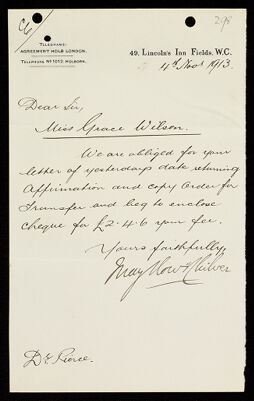 298
TELEGRAMS:
AGREEMENT HOLB LONDON.
TELEPHONE No 1012 HOLBORN.
49, Lincoln's Inn Fields, W.C.
4th Novr 1913.
Dear Sir,
Miss Grace Wilson.
We are obliged for your
letter of yesterdays date returning
Affirmation and copy Order for
Transfer and beg to enclose
cheque for £2.4.6 your fee.
Yours faithfully,
May How & Chilver
Dr. Pierce.